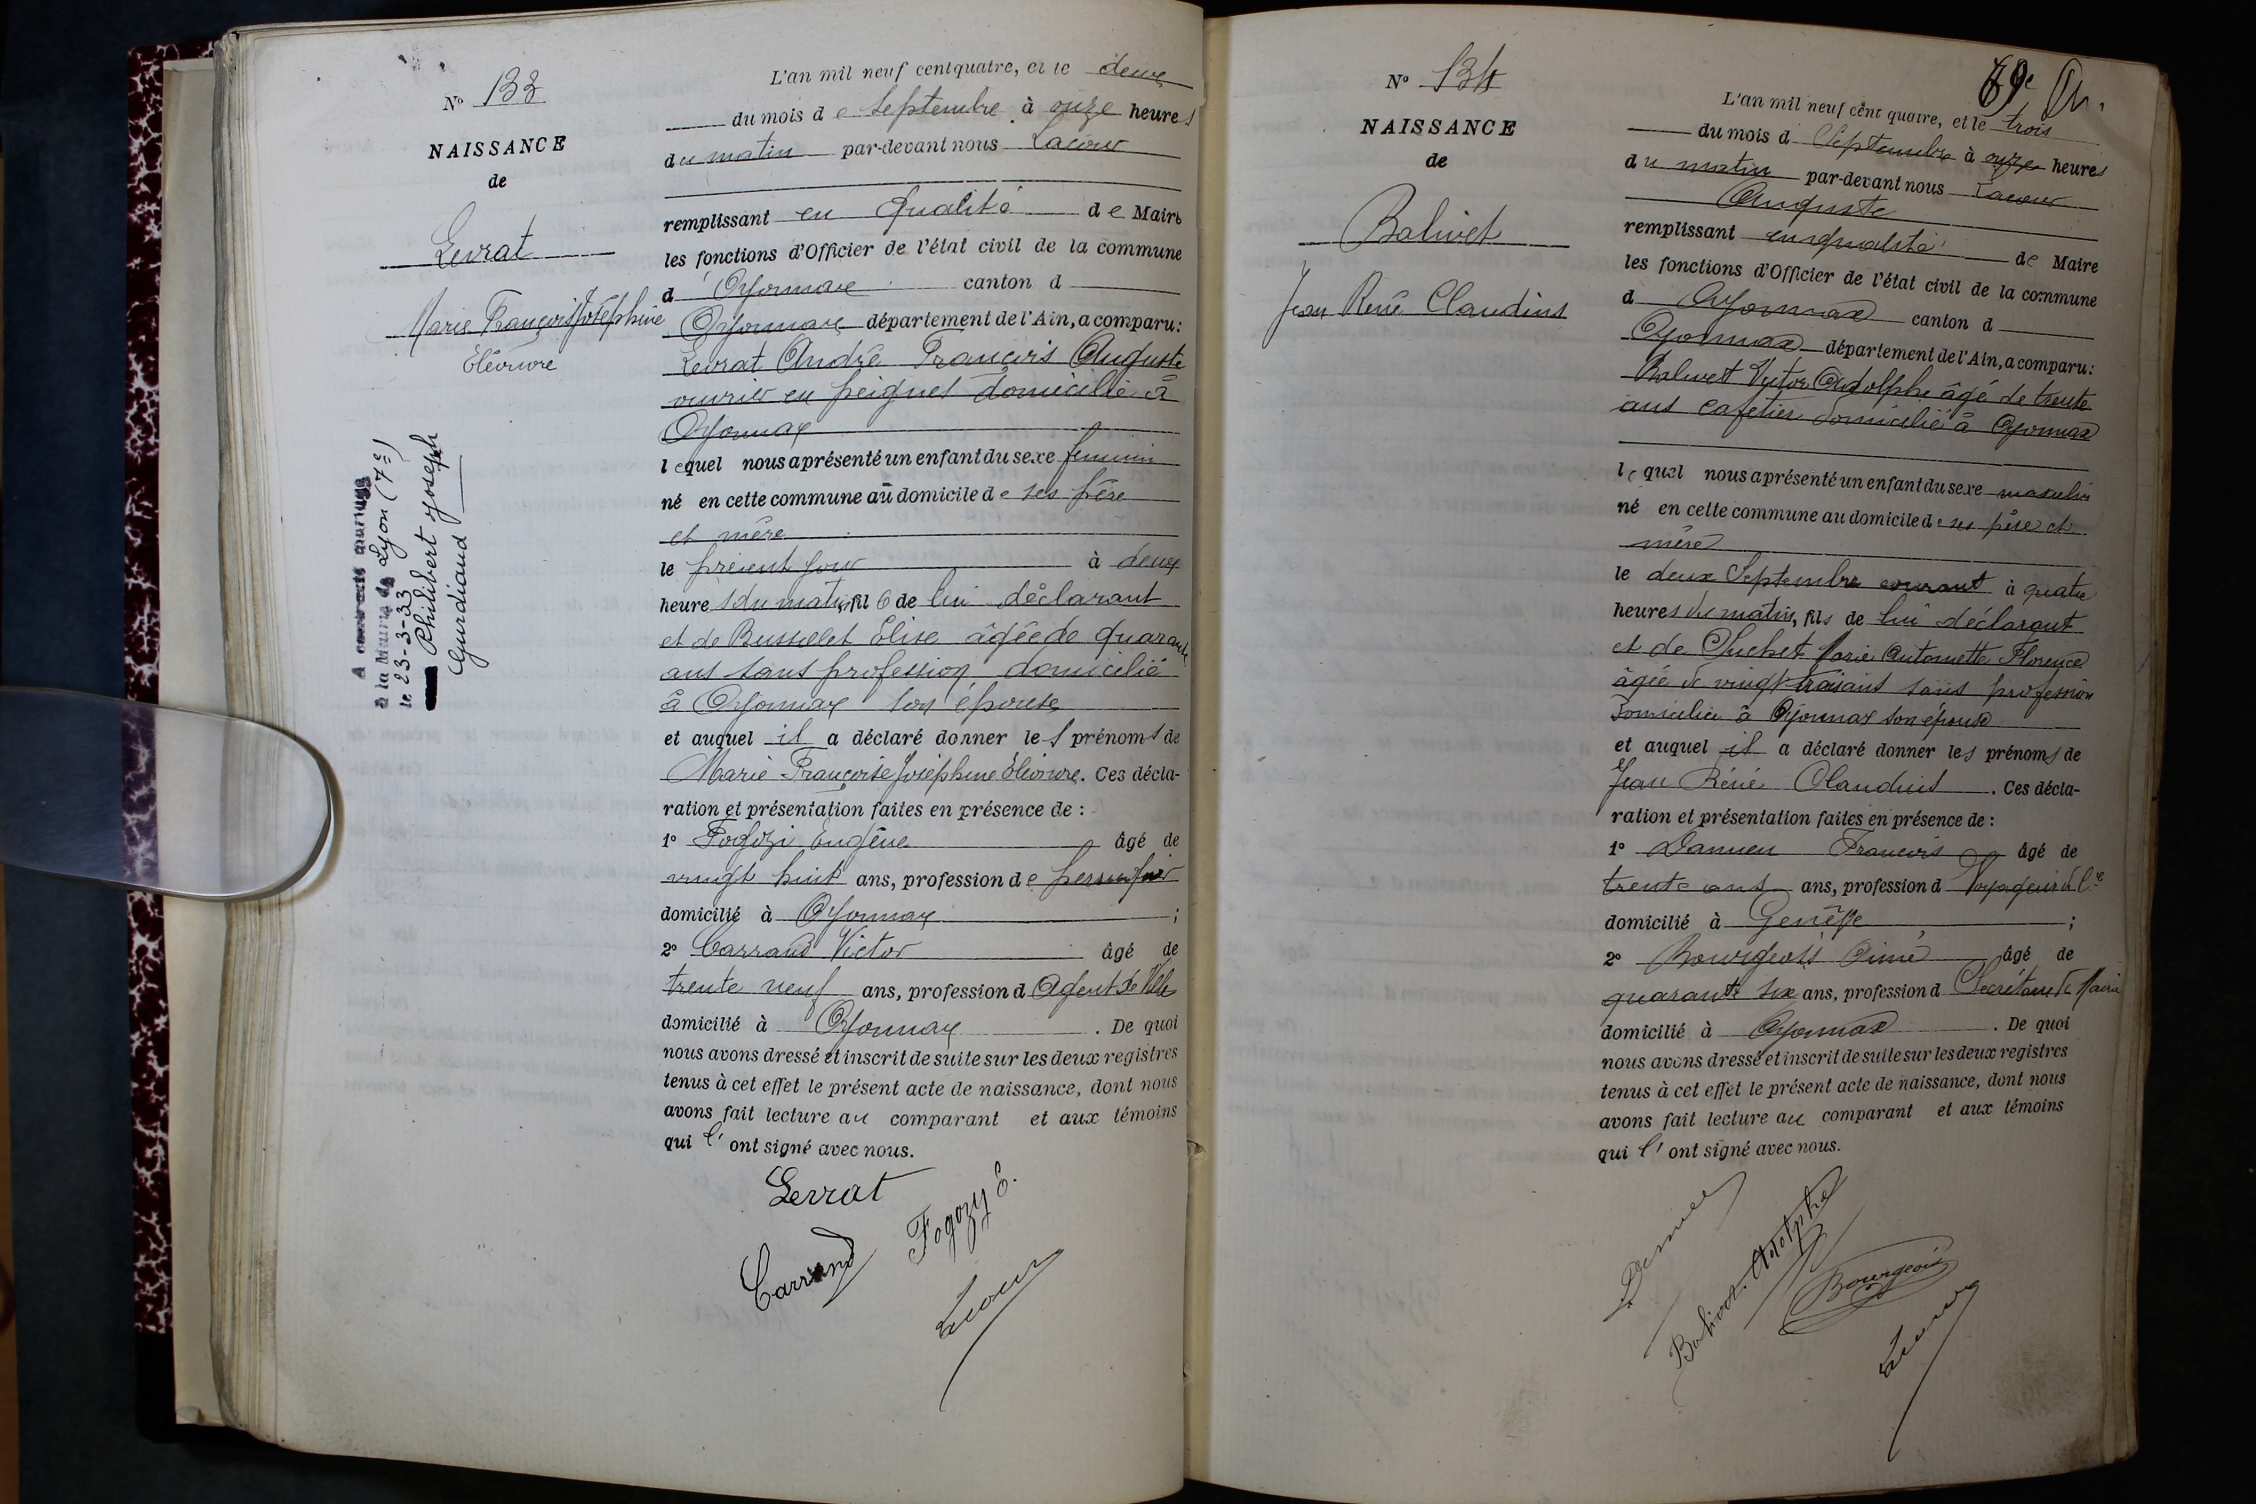 Nº 133
NAISSANCE
de
Levrat
Marie Françoise Joséphine
Eléonore
A contracté mariage
à la Mairie de Lyon (7e)
le 23-3-33
Philibert Joseph
Gurdiaud
L'an mil neuf cent quatre, et le deux
du mois de Septembre à onze heures
du matin par-devant nous Lacour
remplissant en qualité de Maire
les fonctions d'Officier de l'état civil de la commune
d'Oyonnax canton d
Oyonnax département de l'Ain, a comparu:
Levrat André François Auguste
ouvrier en peignes domicilié à
Oyonnax
lequel nous a présenté un enfant du sexe féminin
né en cette commune au domicile de ses père
et mère
le présent jour à deux
heures du matin, fille de lui déclarant
et de Busselet Elise âgée de quarante
ans sans profession domicilié
à Oyonnax son épouse
et auquel il a déclaré donner les prénoms de
Marie Françoise Joséphine Eléonore. Ces décla-
ration et présentation faites en présence de :
1º Fogozi Eugène âgé de
vingt huit ans, profession de
domicilié à Oyonnax ;
2º Carrand Victor âgé de
trente neuf ans, profession d Agent de Ville
domicilié à Oyonnax . De quoi
nous avons dressé et inscrit de suite sur les deux registres
tenus à cet effet le présent acte de naissance, dont nous
avons fait lecture au comparant et aux témoins
qui l'ont signé avec nous.
Levrat
Carrand Fogozy E.
Lacour
89e
Nº 134
NAISSANCE
de
Balivet
Jean René Claudius
L'an mil neuf cent quatre, et le trois
du mois d Septembre à onze heures
du matin par-devant nous Lacour
Auguste
remplissant en qualité de Maire
les fonctions d'Officier de l'état civil de la commune
d Oyonnax canton d
Oyonnax département de l'Ain, a comparu:
Balivet Victor Adolphe âgé de trente
ans cafetier domicilié à Oyonnax
lequel nous a présenté un enfant du sexe masculin
né en cette commune au domicile de ses père et
mère
le deux Septembre courant à quatre
heures du matin, fils de lui déclarant
et de Suchet Marie Antoinette Florence
âgée de vingt trois ans sans profession
domiciliée à Oyonnax son épouse
et auquel il a déclaré donner les prénoms de
Jean Réné Claudius . Ces décla-
ration et présentation faites en présence de :
1º François âgé de
trente ans ans, profession d Voyageur de Cce
domicilié à Genève ;
2º Bourgeois Aimé âgé de
quarante six ans, profession d Secrétaire de Mairie
domicilié à Oyonnax . De quoi
nous avons dressé et inscrit de suite sur les deux registres
tenus à cet effet le présent acte de naissance, dont nous
avons fait lecture au comparant et aux témoins
qui l'ont signé avec nous.
Balivet Adolphe
Bourgeois
Lacour